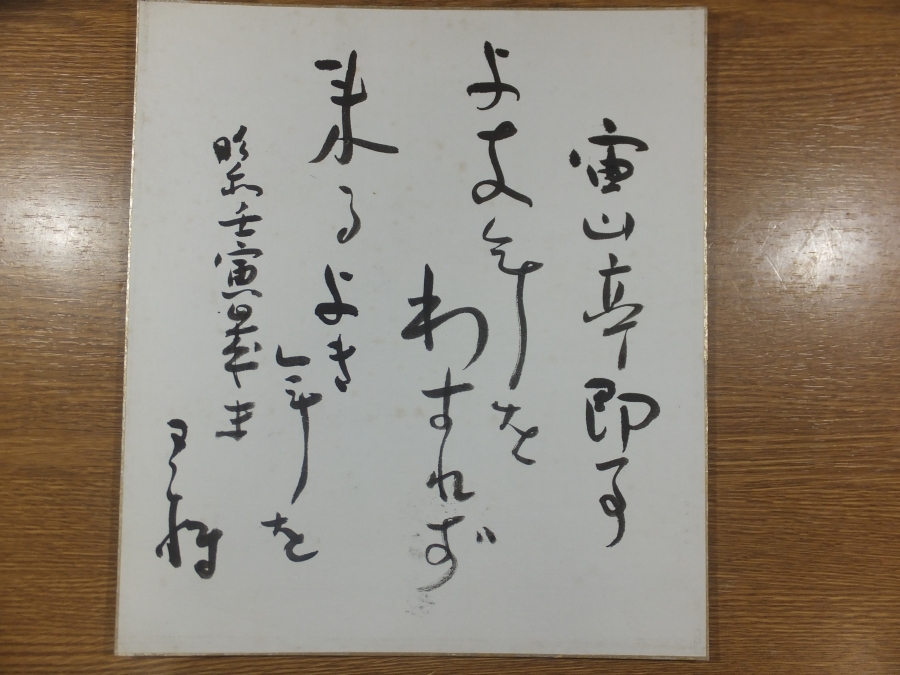 宙山亭即事
よき年を
わすれず
来るよき
年を
昭和壬寅暮春